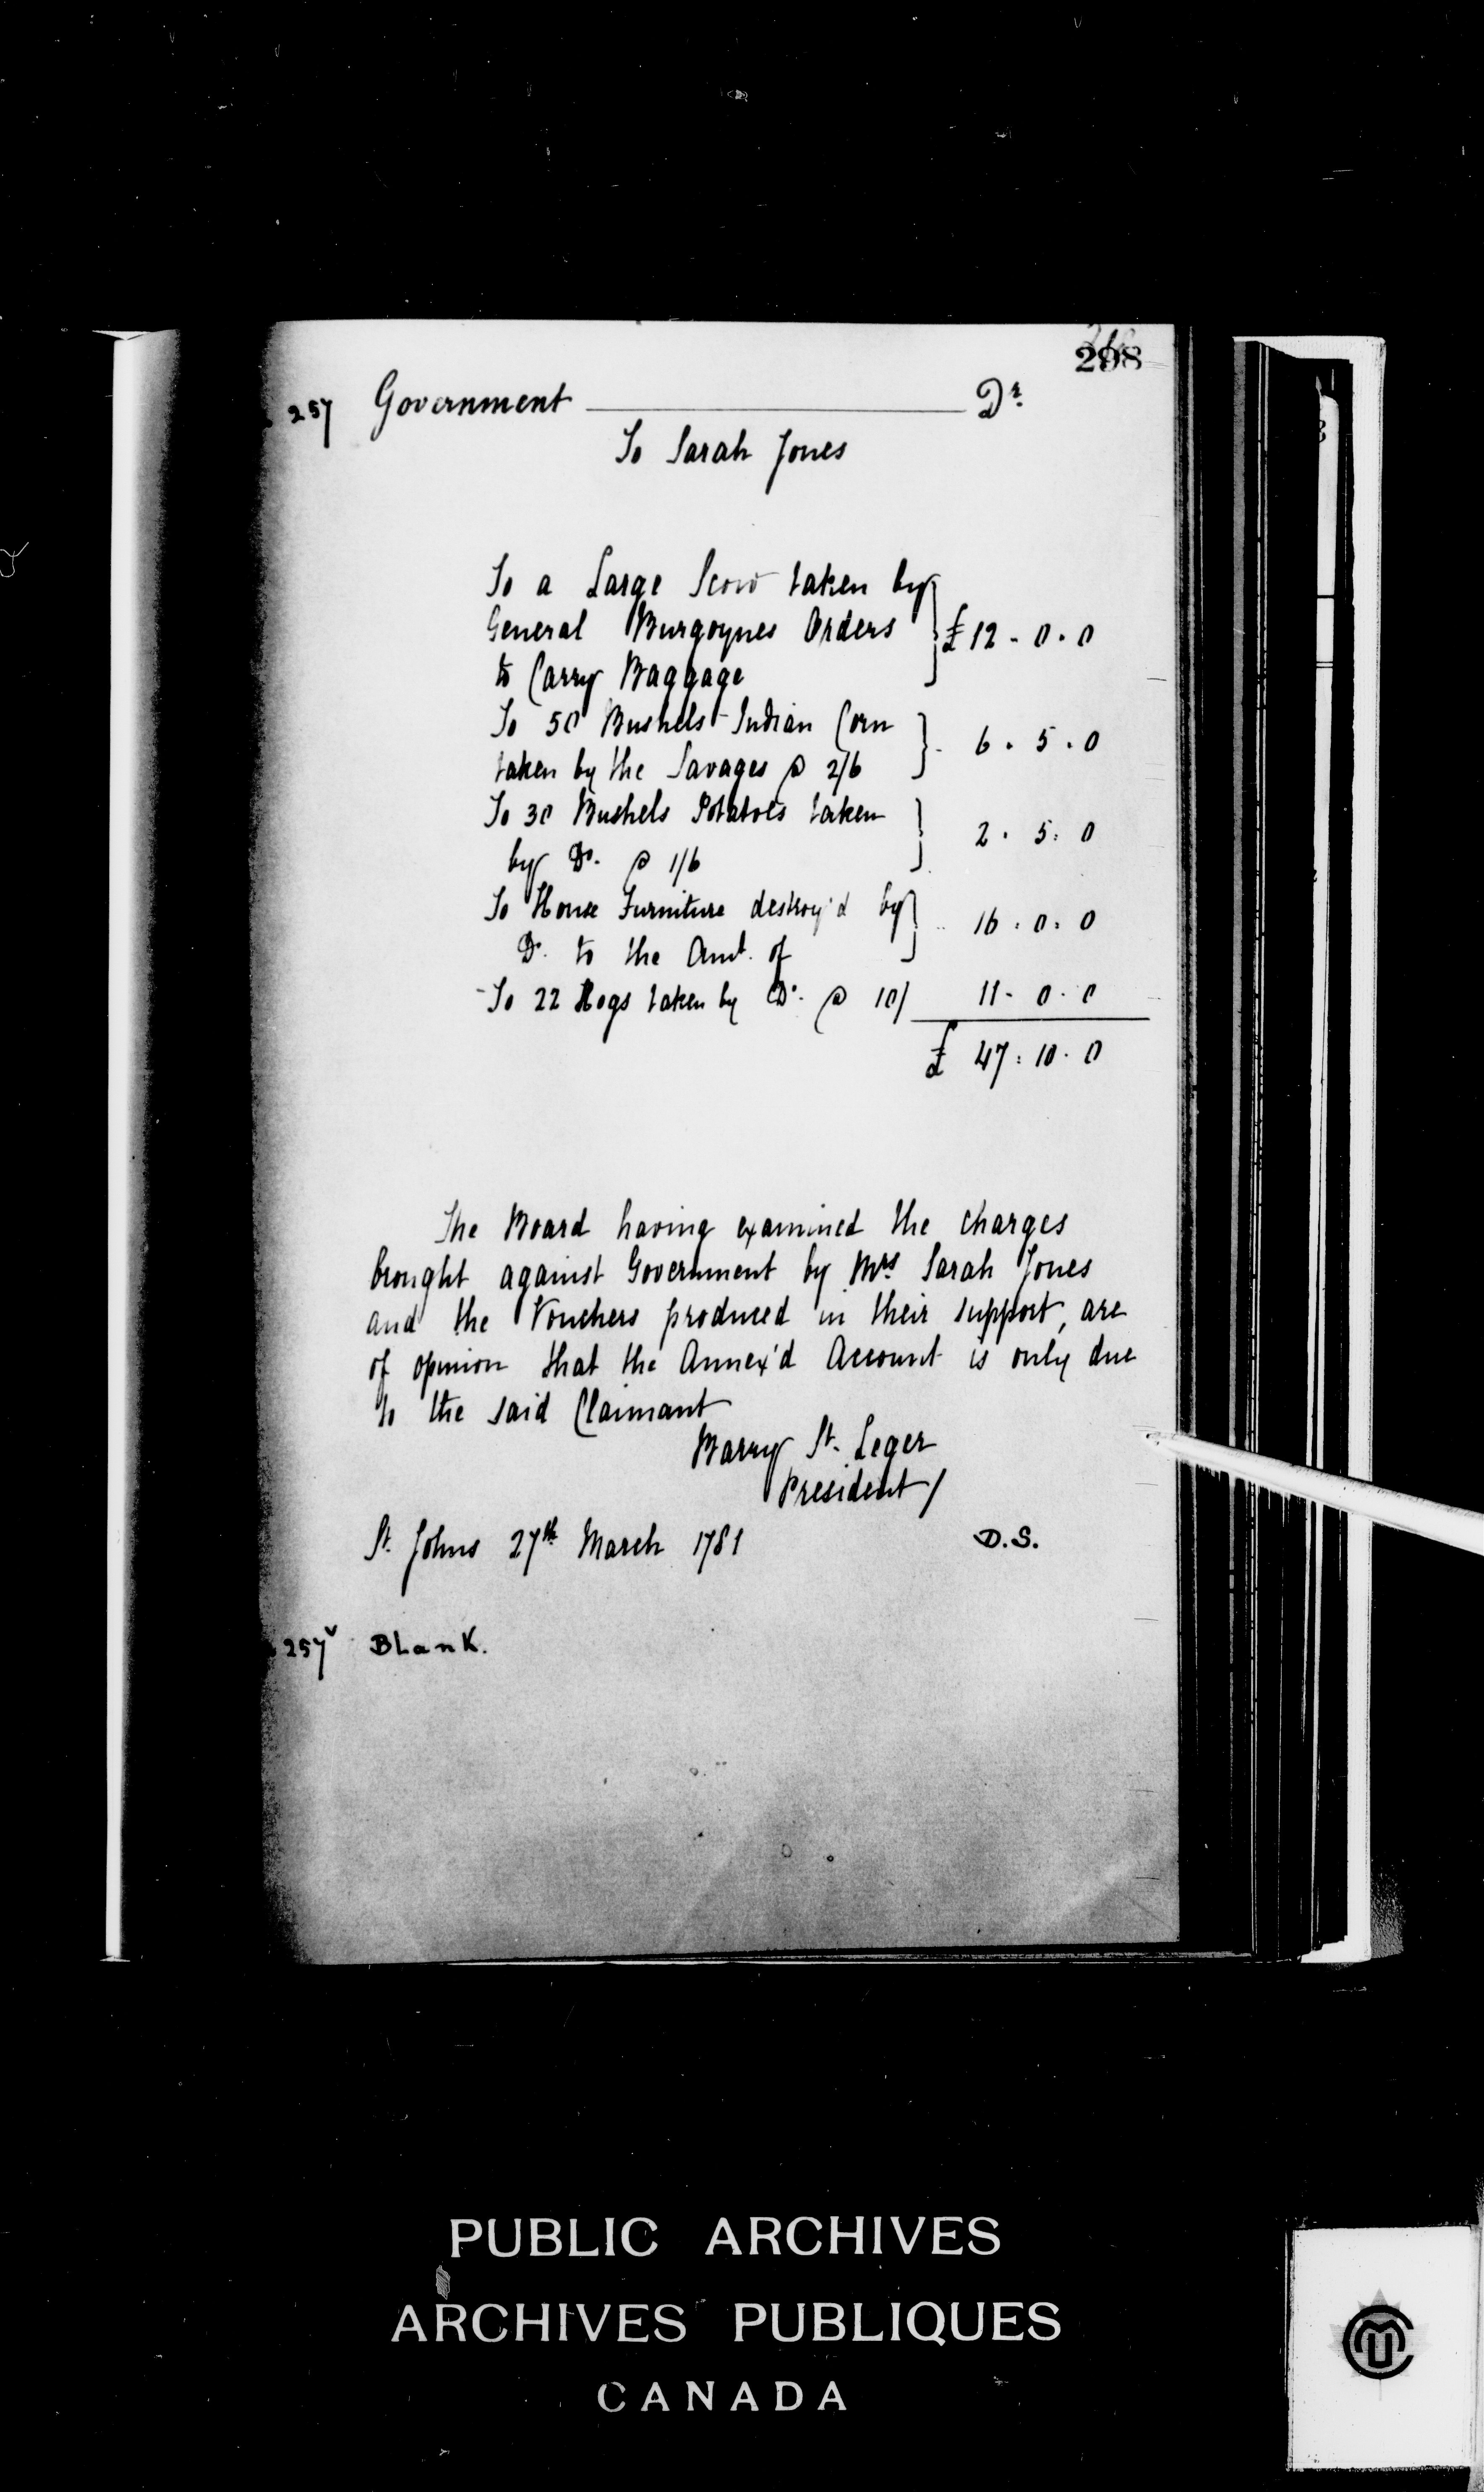 298
257 Government Dr.
To Sarah Jones
To a Large Scow taken by
General Burgoynes Orders } £ 12 - 0 . 0
to Carry Baggage
To 50 Bushels Indian Corn
taken by the Savages @ 2/6 } 6 . 5 . 0
To 30 Bushels Potatoes taken
by Do. @ 1/6 } 2 . 5 : 0
To House Furniture destroy'd by
Do. to the Amt. of } 16 : 0 : 0
To 22 Hogs taken by Do. @ 10/ 11 - 0 . 0
£ 47 : 10 . 0
The Board having examined the charges
brought against Government by Mrs Sarah Jones
and the Vouchers produced in their support, are
of opinion that the Annex'd Account is only due
to the said Claimant
Barry St. Leger
President /
St. Johns 27th March 1781 D.S.
257v Blank.
PUBLIC ARCHIVES
ARCHIVES PUBLIQUES
CANADA